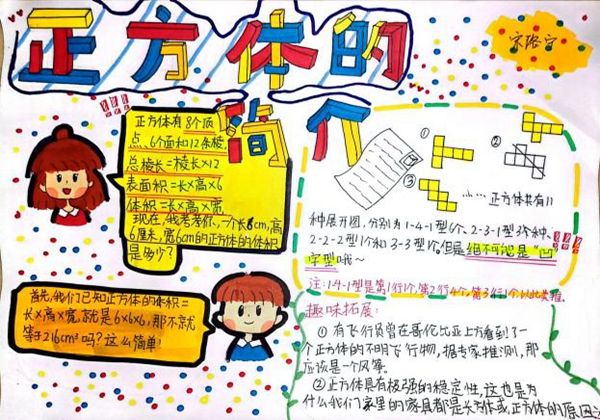 正方体的
简介
宋珞宁
正方体有8个顶
点、6个面和12条棱
总棱长=棱长×12
表面积=长×高×6
体积=长×高×宽
现在,我考考你,一个长6cm,高
6厘米,宽6cm的正方体的体积
是多少?
首先,我们已知正方体的体积=
长×高×宽,就是6×6×6,那不就
等于216cm³吗?这么简单!
①
②
③
……正方体共有11
种展开图,分别为1-4-1型6个、2-3-1型3个种、
2-2-2型1个和3-3型1个,但是绝不可能是“凹”
字型哦~
注:1-4-1型是第1行1个,第2行4个,第3行1个以此类推.
趣味拓展:
①有飞行员曾在哥伦比亚上方看到了一
个正方体的不明飞行物,据专家推测,那
应该是一个风筝。
②正方体具有极强的稳定性,这也是为
什么我们家里的家具都是长方体或正方体的原因